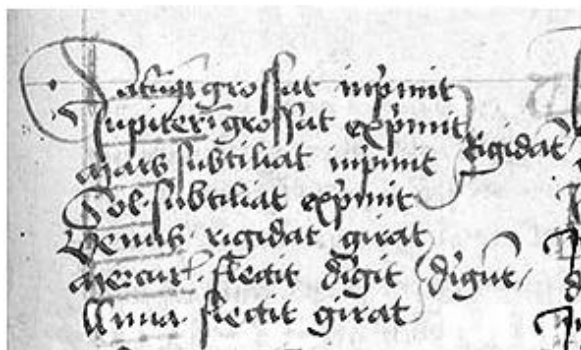 Saturn ingrossat inprimit
Jupiter ingrossat exprimit
mars subtiliat inprimit rigidat
Sol subtiliat exprimit
Venus rigidat girat
mercur flectit digit
lluna flectit girat